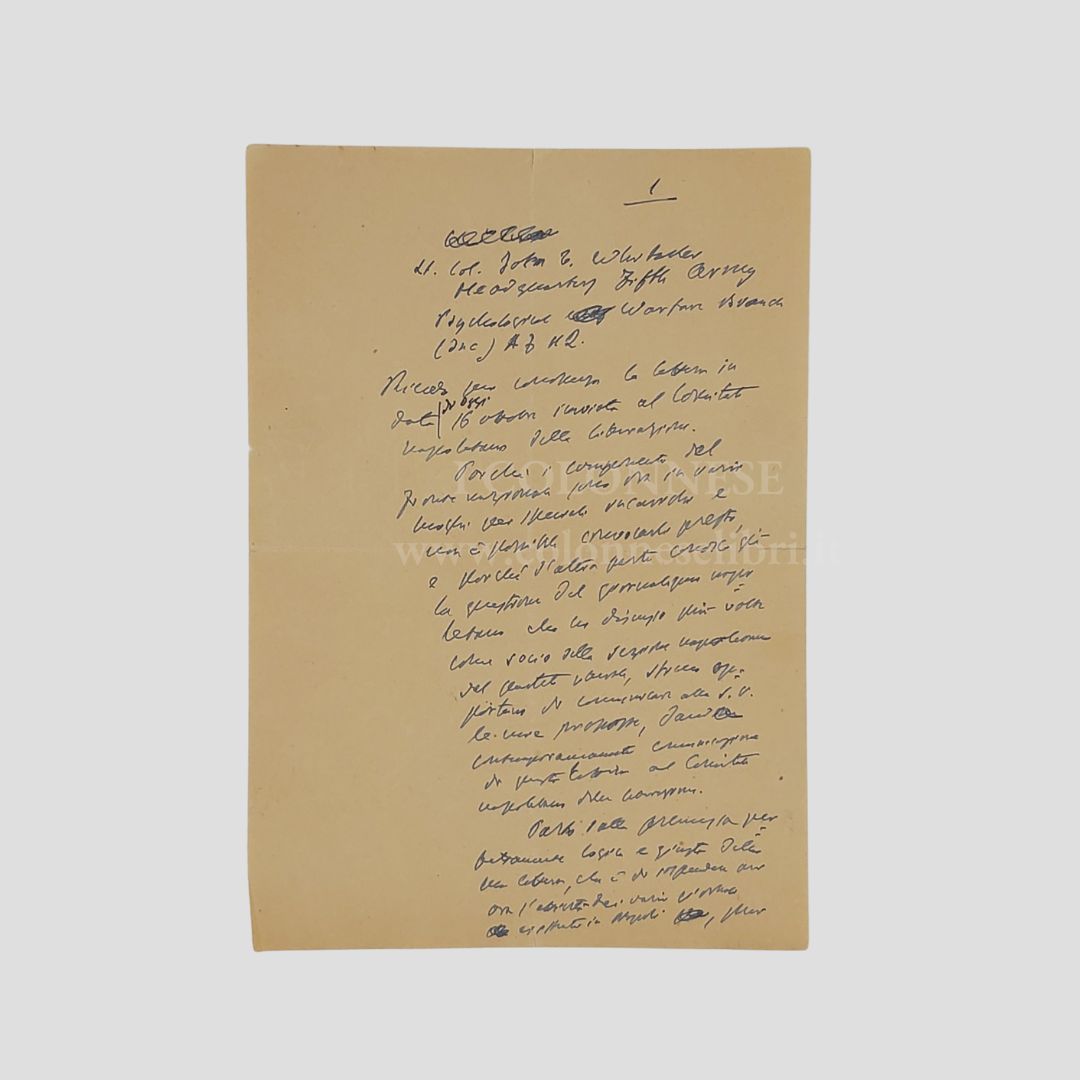 1
Lt. Col. John T. Whitaker
Headquarters Fifth Army
Psychological Warfare Branch
(Inc) A F H Q.
Ricevo per conoscenza la lettera in
data di oggi 16 ottobre inviata al Comitato
napoletano della liberazione.
Poiché i componenti del
Fronte nazionale sono ora in varii
luoghi per speciali incarichi e
non è possibile convocarli presto,
e poiché d'altra parte conosco già
la questione del giornalismo napo=
letano che ho discusso più volte
come socio della sezione napoletana
del , stimo op=
portuno di comunicare alla S.V.
le mie proposte, dando
contemporaneamente comunicazione
di questa lettera al Comitato
napoletano della liberazione.
Parto dalla premessa per=
fettamente logica e giusta della
sua lettera, che è da sospendere per
ora l'attività dei varii giornali
esistenti in Napoli,
COLONNESE
www.colonneselibri.it